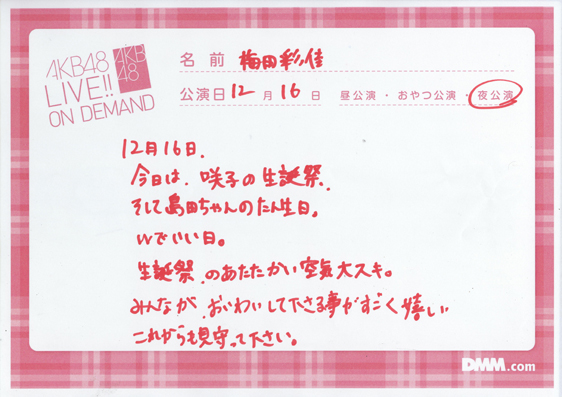 AKB48
LIVE!!
ON DEMAND
AKB
48
名前 梅田彩佳
公演日 12月16日 昼公演・おやつ公演・夜公演
12月16日.
今日は、咲子の生誕祭.
そして島田ちゃんのたん生日。
Wでいい日。
生誕祭.のあたたかい空気大スキ。
みんなが.おいわいして下さる事がすごく嬉しい
これからも見守って下さい。
DMM.com